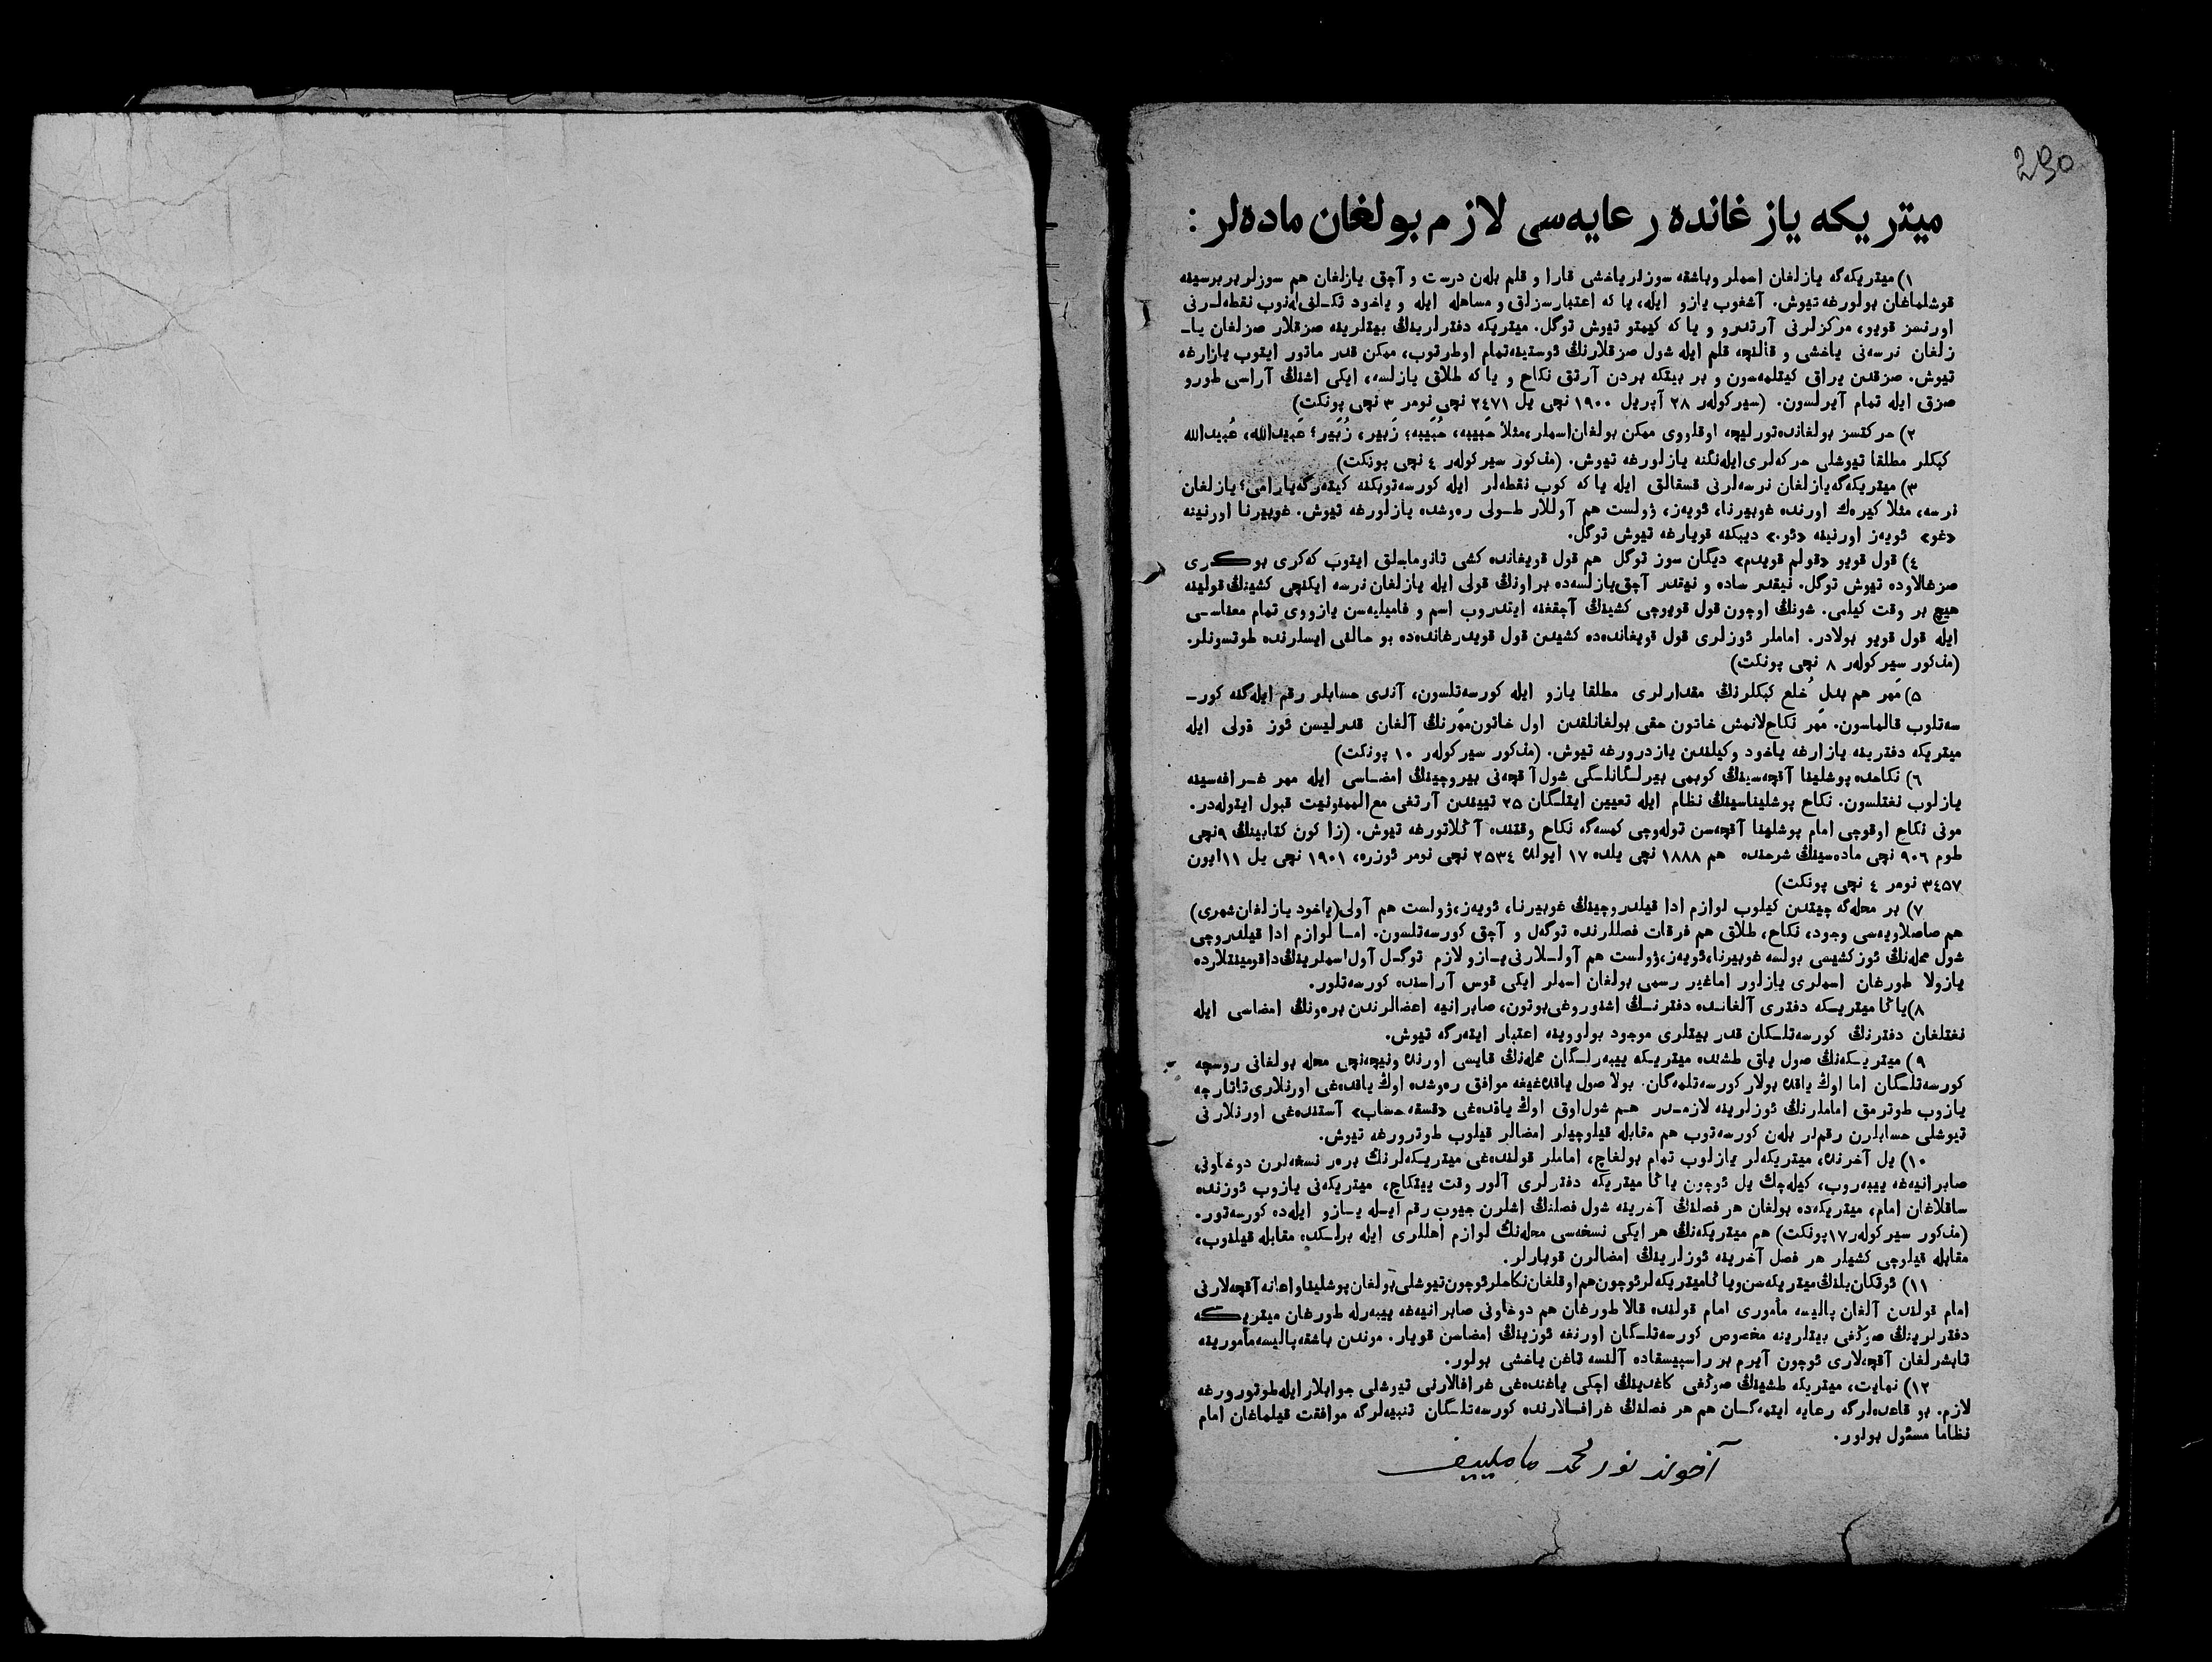 290
میتریکه یازغانده رعایه‌سی لازم بولغان ماده‌لر :
۱) میتریکه‌گه یازلغان اسملر وباشقه سوزلر یاخشی قارا و قلم بله‌ن درست و آچق یازلغان هم سوزلر بربرسینه
قوشلماغان بولورغه تیوش. آشغوب یازو ایله، یا که اعتبارسزلق و مساهله ایله و یاخود تکـلفی‌له‌نوب نقطه‌لـرنی
اورنسز قویو، مرکزلرنی آرتدرو و یا که کیمتو تیوش توگل. میتریکه دفترلرینڭ بیتلرینه صزقلار صزلغان یا-
زلغان نرسه‌نی یاخشی و قالنچه قلم ایله شول صزقلارنڭ ئوستینه تمام اوطرتوب، ممکن قدر ماتور ایتوب یازارغه
تیوش. صزقدن یراق کیتلمه‌سون و بر بیتکه بردن آرتق نکاح و یا که طلاق یازلسه، ایکی اشنڭ آراسی طورو
صزق ایله تمام آیرلسون. (سیرکولەر ۲۸ آپریل ۱۹۰۰ نچی یل ۲٤۷۱ نچی نومر ۳ نچی پونکت)
۲) حرکتسز بولغانده تورلیچه اوقلووی ممکن بولغان اسملر، مثلا حَبیبه، حُبَیبه؛ زَبیر، زُبَیر؛ عَبیدالله، عُبیدالله
کبکلر مطلقا تیوشلی حرکه‌لری ایله‌نگنه یازلورغه تیوش. (مذکور سیرکولەر ٤ نچی پونکت)
۳) میتریکه‌گه یازلغان نرسه‌لرنی قسقالق ایله یا که کوب نقطه‌لر ایله کورسه‌توبکنه کیته‌رگه یارامی؛ یازلغان
نرسه، مثلا کیره‌ك اورنده غوبیرنا، ئویه‌ز، ژولست هم آوللار طـولی ره‌وشده یازلورغه تیوش. غوبیرنا اورنینه
«غو» ئویه‌ز اورنینه «ئو.» دیبکنه قویارغه تیوش توگل.
٤) قول قویو «قولم قویدم» دیگان سوز توگل هم قول قویغانده کشی تانوماسلق ایتوب که‌کری بوکـری
صزغالاوده تیوش توگل. نیقدر ساده و نیقدر آچق یازلسه‌ده براونڭ قولی ایله یازلغان نرسه ایکنچی کشینڭ قولینه
هیچ بر وقت کیلمی. شونڭ اوچون قول قویوچی کشینڭ آچقغنه ایتدروب اسم و فامیلیه‌سن یازووی تمام معناسـی
ایله قول قویو بولادر. اماملر ئوزلری قول قویغانده‌ده کشیدن قول قویدرغانده‌ده بو حالنی ایسلرنده طوتسونلر.
(مذکور سیرکولەر ۸ نچی پونکت)
۵) مَهر هم بدل خُلع کبکلرنڭ مقدارلری مطلقا یازو ایله کورسه‌تلسون، آندی حسابلر رقم ایله‌گنه کور-
سه‌تلوب قالماسون. مَهر نکاح‌لانمش خاتون حقی بولغانلقدن اول خاتون مهرنڭ آلغان قدرلیسن ئوز قولی ایله
میتریکه دفترینه یازارغه یاخود وکیلندن یازدرورغه تیوش. (مذکور سیرکولەر ۱۰ پونکت)
٦) نکاحده پوشلینا آقچه‌سینڭ کوبمی بیرلـگانلـگی شول آقچه‌نی بیروچینڭ امضـاسی ایله مهر غـرافه‌سینه
یازلوب نغتلسون. نکاح پوشلیناسینڭ نظام ایله تعیین ایتلـگان ۲۵ تییندن آرتغی مع‌الممنونیت قبول ایتوله‌در.
مونی نکاح اوقوچی امام پوشلینا آقچه‌سن توله‌وچی کمسه‌گه نکاح وقتنده آڭلاتورغه تیوش. (زاکون کتابینڭ ۹ نچی
طوم ۹۰٦ نچی ماده‌سینڭ شرحنده هم ۱۸۸۸ نچی یلده ۱۷ ایولده ۲۵۳٤ نچی نومر ئوزره، ۱۹۰۱ نچی یل ۱۱ ایون
۳٤۵۷ نومر ٤ نچی پونکت)
۷) بر محله‌گه چیتدن کیلوب لوازم ادا قیلدروچینڭ غوبیرنا، ئویه‌ز، ژولست هم آولی (یاخود یازلغان شهری)
هم صاصلاویه‌سی وجود، نکاح، طلاق هم فرقات فصللرنده توگه‌ل و آچق کورسه‌تلسون. امـا لوازم ادا قیلدروچی
شول محله‌نڭ ئوز کشیسی بولسه غوبیرنا، ئویه‌ز، ژولست هم آولـلارنی یـازو لازم توگـل آول اسملرینڭ داقومینتلارده
یازولا طورغان اسملری یازلور اماغیر رسمی بولغان اسملر ایکی قوس آراسنده کورسه‌تلور.
۸) یاڭا میتریـکه دفتری آلغانـده دفترنـڭ اشنوروغی بوتون، صابرانیه اعضالرندن بره‌ونڭ امضاسی ایله
نغتلغان دفترنڭ کورسه‌تلـگان قدر بیتلری موجود بولووینه اعتبار ایته‌رگه تیوش.
۹) میتریـکه‌نڭ صول یاق طشنده میتریـکه بییه‌رلـگان محله‌نڭ قایسی اورنده ونیچه‌نچی محله بولغانی روسچه
کورسه‌تلـگان اما اوڭ یاقده بولار کورسه‌تلمه‌گان. بولا صول یاقده‌غیغه موافق ره‌وشده اوڭ یاقده‌غی اورنلاری تاتارچه
یازوب طوترمق اماملرنڭ ئوزلرینه لازمـدر هـم شول اوق اوڭ یاقده‌غی «قسقه حساب» آستنده‌غی اورنلارنی
تیوشلی حسابلرن رقملر بله‌ن کورسه‌توب هم مقابله قیلوچیلر امضالر قیلوب طوترورغه تیوش.
۱۰) یل آخرنده، میتریکه‌لر یازلوب تمام بولغاچ، اماملر قولنده‌غی میتریـکه‌لرنڭ بره‌ر نسخه‌لرن دوخاونی
صابرانیه‌غه ییبه‌روب، کیله‌چك یل ئوچون یاڭا میتریکه دفترلری آلور وقت ییتکاچ، میتریکه‌نی یازوب ئوزنده
ساقلاغان امام، میتریکه‌ده بولغان هر فصلنڭ آخرینه شول فصلنڭ اشلرن جیوب رقم ایـله یـازو ایله‌ده کورسه‌تور.
(مذکور سیرکولەر ۱۷ پونکت) هم میتریکه‌نڭ هر ایکی نسخه‌سی محله‌نڭ لوازم اهللری ایله برلـکده مقابله قیلنوب،
مقابله قیلوچی کشیلر هر فصل آخرینه ئوزلرینڭ امضالرن قویارلر.
۱۱) ئوتکان یلنڭ میتریکه‌سن ویاڭا میتریکه‌لر ئوچون هم اوقلغان نکاحلر ئوچون تیوشلی بولغان پوشلینا واعانه آقچه‌لارنی
امام قولندن آلغان پالیسه مأموری امام قولنده قالا طورغان هم دوخاونی صابرانیه‌غه ییبه‌رله طورغان میتریـکه
دفترلرینڭ صوڭغی بیتلرینه مخصوص کورسه‌تلـگان اورنغه ئوزینڭ امضاسن قویار. موندن باشقه پالیسه مأمورینه
تابشرلغان آقچه‌لاری ئوچون آیرم بر راسپیسقاده آلنسه تاغن یاخشی بولور.
۱۲) نهایت، میتریکه طشینڭ صوڭغی کاغدینڭ اچکی یاغنده‌غی غرافالارنی تیوشلی جوابلار ایله طوتورورغه
لازم. بو قاعده‌لرگه رعایه ایتمه‌گـان هم هر فصلنڭ غرافـالارنده کورسه‌تلـگان تنبیه‌لرگه موافقت قیلماغان امام
نظاما مسئول بولور.
آخوند نور محمد ماملییف